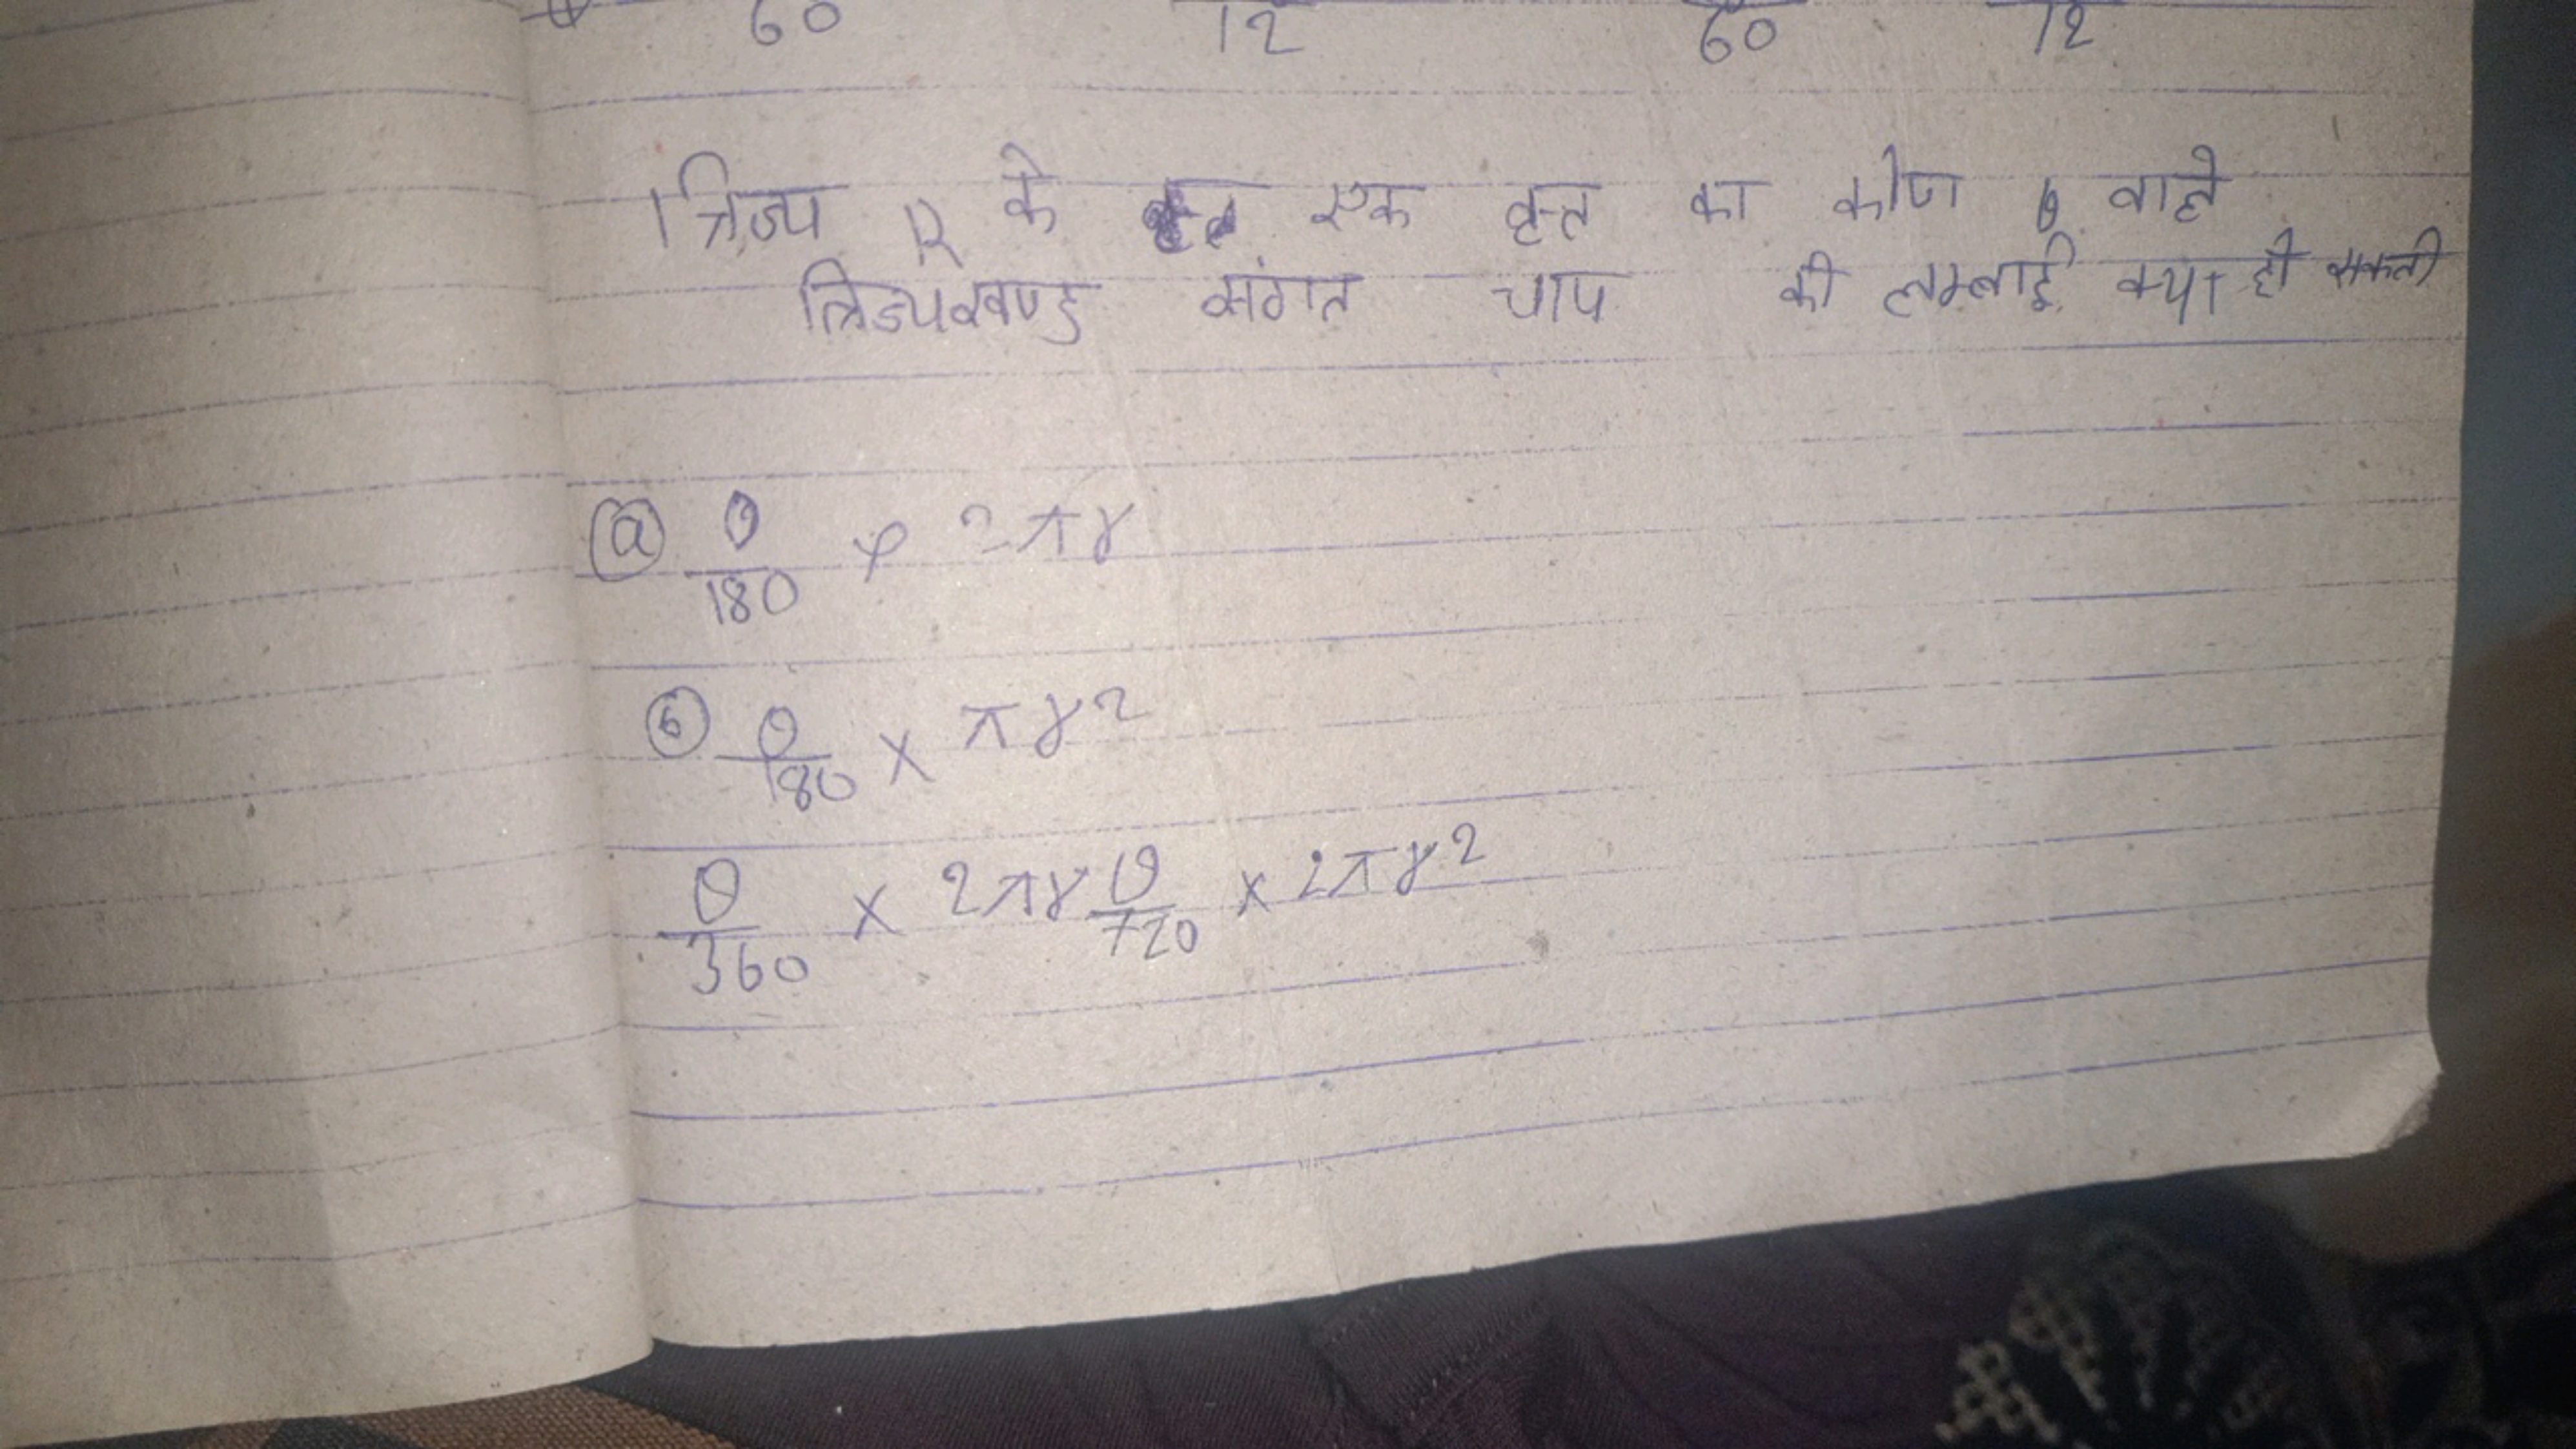 60 12 60 12
त्रिज्य R के एक वृत्त का कोण θ वाले
त्रिज्यखण्ड संगत चाप की लम्बाई क्या हो सकती
(a) θ/180 × 2πr
(b) θ/180 × πr²
θ/360 × 2πr θ/720 × 2πr²